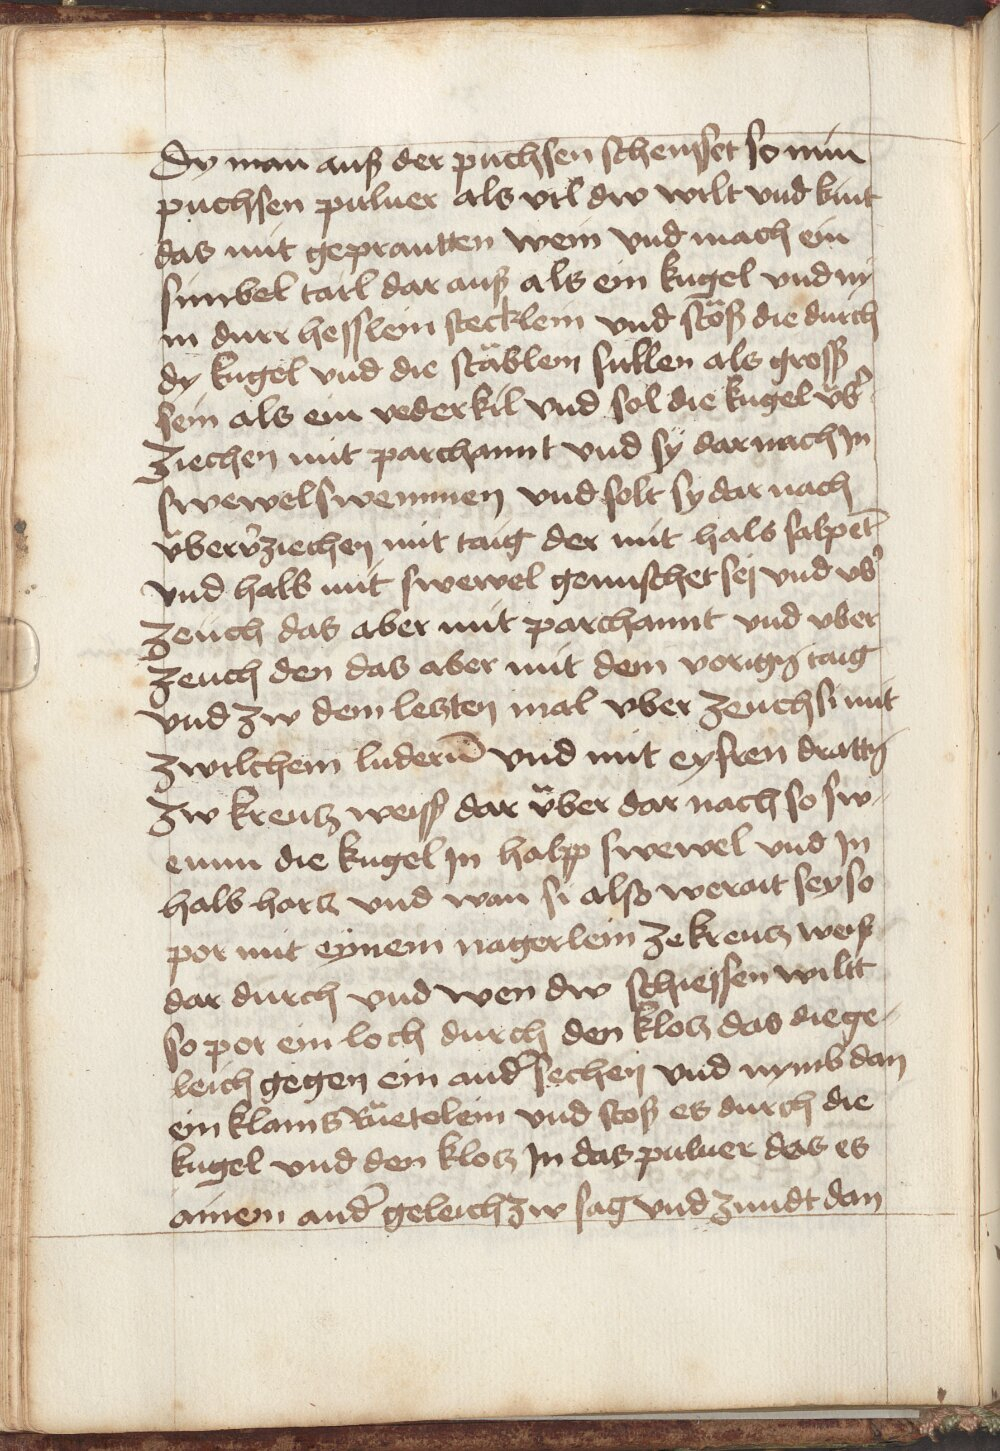 Dy man auß der puchsen scheusset so nim
puchsen puluer als vil dw wilt vnd knit
das mit geprantten wein vnd mach ein
sinwel tail dar auß als ein kugel vnd ny
in durr hesslein stecklein vnd stöß die durch
dy kugel vnd die stäblein sullen als gross
sein als ein vederkil vnd sol die kugel vb̄
ziechen mit parchannt vnd sy darnach Jn
swewel swemmen vnd solt sy dar nach
vber v̄ziechen mit taig der mit halb salpet̄
vnd halb mit swewel gemischet sej vnd vb̄
zeuch das aber mit parchannt vnd vber
zeuch den das aber mit dem vorign̄ taig
vnd zw dem leczten mal vber zeuch si mit
zwilchem luderū vnd mit eysren drattn̄
zw kreucz weiss dar v̈ber dar nach so sw-
emm die kugel Jn halpp swewel vnd Jn
halb harcz vnd wan si also werait sey so
por mit eynem nagerlein ze kreucz weis
dar durch vnd wen dw schiessen wiltt
so por ein loch durch den klocz das die ge-
leich gegen ein and̄ sechen vnd nymb dan
ein klains Ruetelein vnd stoß es durch die
kugel vnd den klocz Jn das puluer das es
ainem and̄ geleich zw sag vnd zundt dan